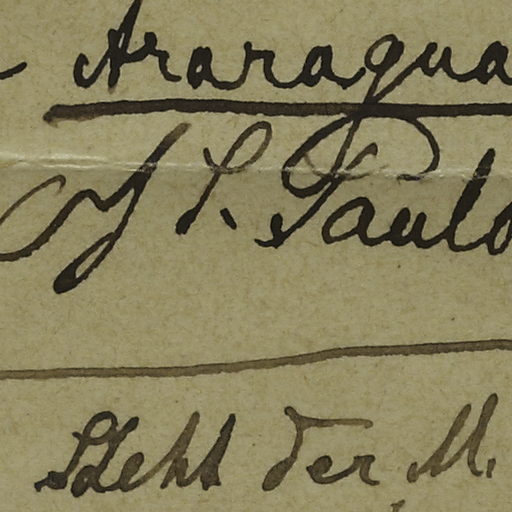 Araragua
S. Paulo
Steht der M.